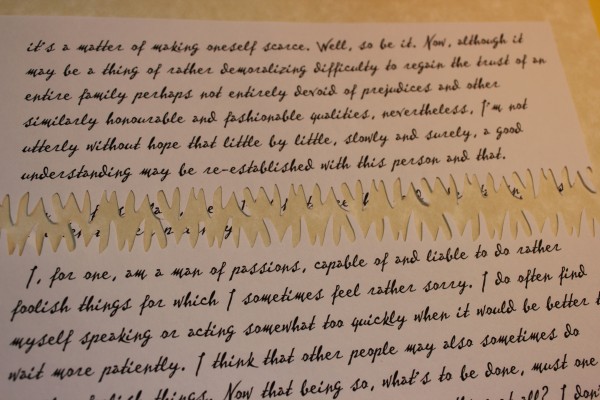 it's a matter of making oneself scarce. Well, so be it. Now, although it
may be a thing of rather demoralizing difficulty to regain the trust of an
entire family perhaps not entirely devoid of prejudices and other
similarly honourable and fashionable qualities, nevertheless, I'm not
utterly without hope that little by little, slowly and surely, a good
understanding may be re-established with this person and that.
I, for one, am a man of passions, capable of and liable to do rather
foolish things for which I sometimes feel rather sorry. I do often find
myself speaking or acting somewhat too quickly when it would be better
wait more patiently. I think that other people may also sometimes do
foolish things. Now that being so, what's to be done, must one
all? I don't